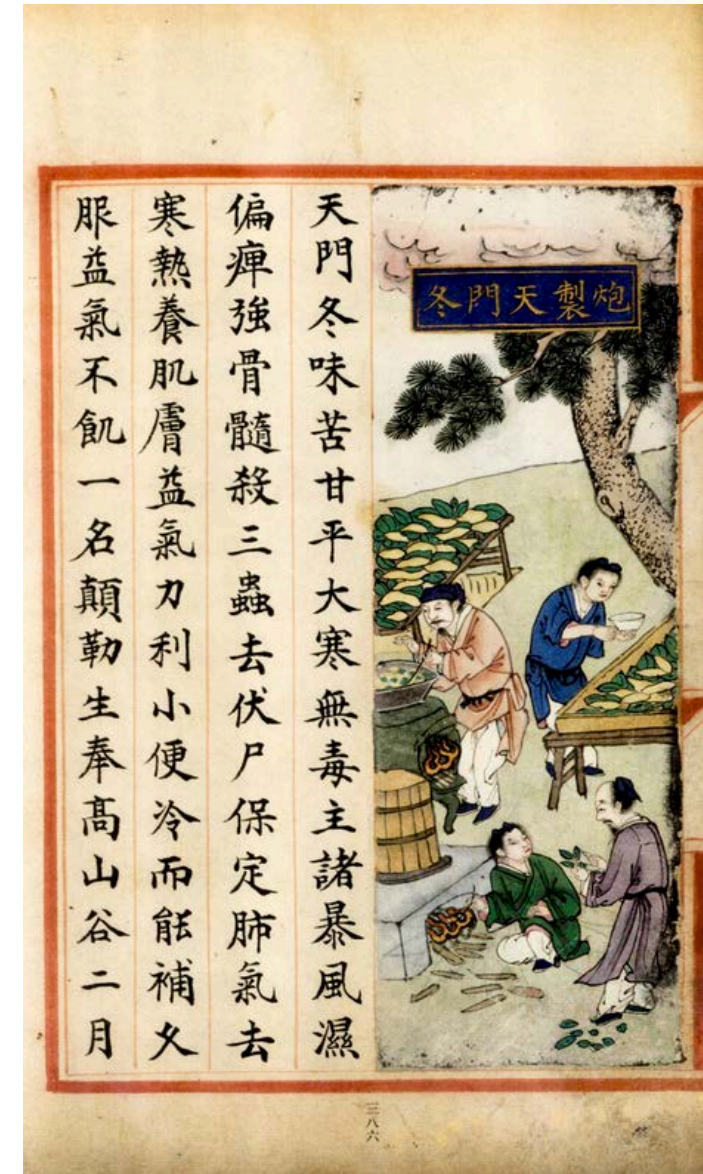 炮製天門冬
天門冬味苦甘平大寒無毒主諸暴風濕
偏痺強骨髓殺三蟲去伏尸保定肺氣去
寒熱養肌膚益氣力利小便冷而能補久
服益氣不飢一名顛勒生奉高山谷二月
三八六